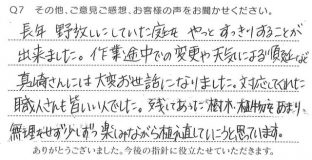 Q7 その他、ご意見ご感想、お客様の声をお聞かせください。
長年 野放しにしていた庭を やっと すっきりすることが
出来ました。作業途中での変更や天気による順延など
真崎さんには 大変お世話になりました。対応してくれた
職人さんも皆いい人でした。残してあった樹木・植物をあまり
無理をせず少しずつ楽しみながら植え直していこうと思っています。
ありがとうございました。今後の指針に役立たせていただきます。